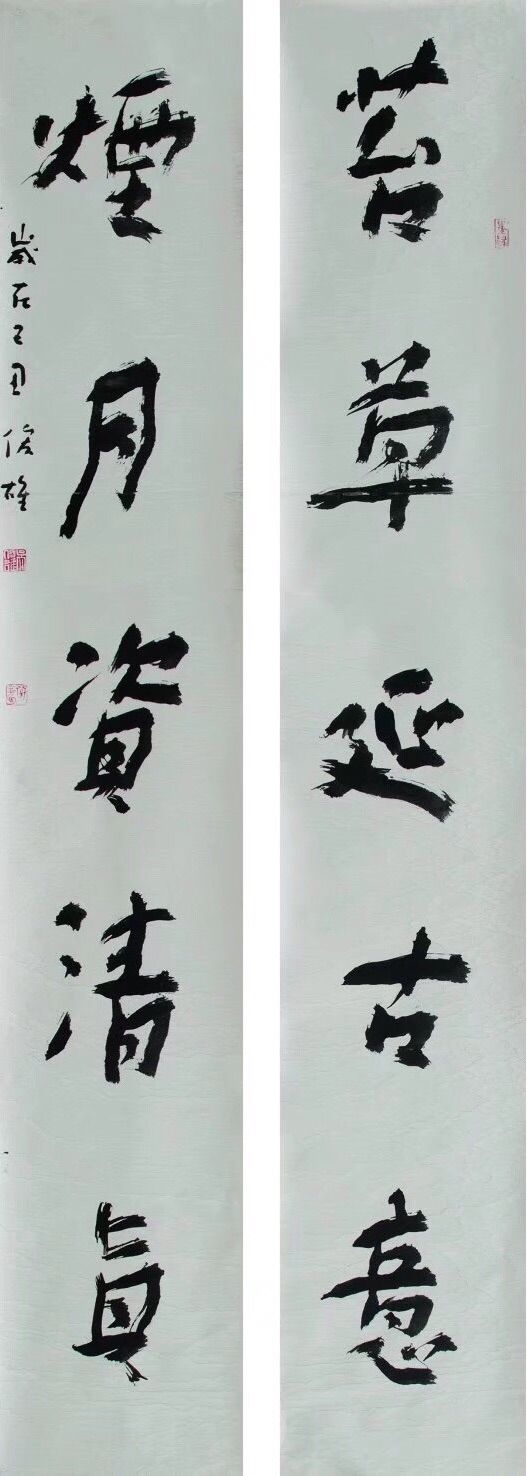 苔草延古意
煙月資清真
歲在己丑 俊雄